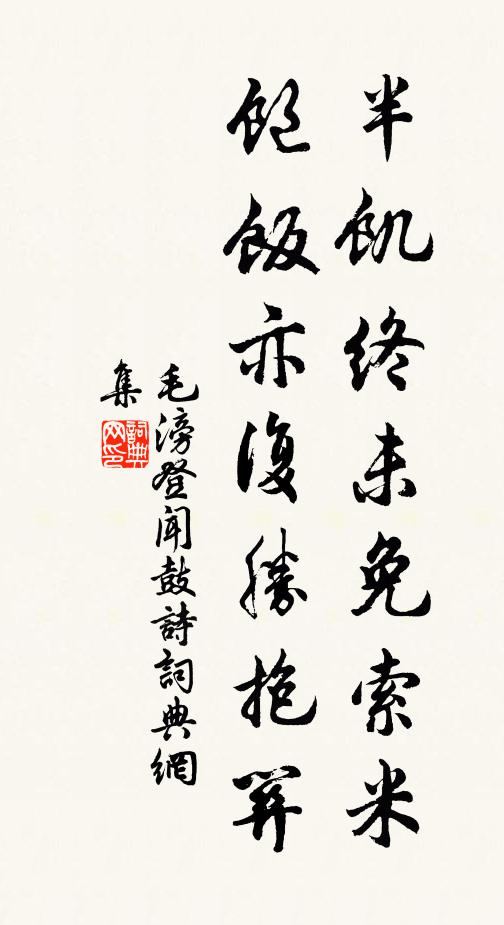 半飢終未免索米
飽飯亦復勝抱關
毛滂登聞鼓詩詞典網
集
詞典
网印